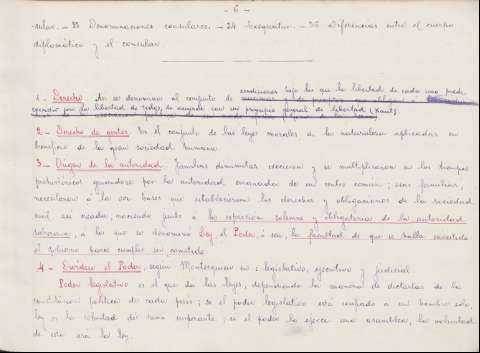 - 6 -
sular. - 23 Denominaciones consulares. - 24 Exequatur. - 25 Diferencias entre el cuerpo
diplomático y el consular.
1 - Derecho. Así se denomina al conjunto de condiciones bajo las que la libertad de cada uno puede
por la libertad de todos, de acuerdo con un principio general de libertad (Kant).
2 - Derecho de gentes. Es el conjunto de las leyes morales de la naturaleza aplicadas en
beneficio de la gran sociedad humana.
3 - Origen de la autoridad. Familias diminutas crecieron y se multiplicaron en los tiempos
prehistóricos guiándose por la autoridad emanada de un centro común; esas familias,
necesitaron a la vez bases que establecieran los derechos y obligaciones de la sociedad
civil así creada, naciendo junto a la expresión solemne y obligatoria de la autoridad
soberana, a la que se denominó Ley, el Poder, ó sea, la facultad de que se halla investido
el soberano hacer cumplir su cometido.
4 - Divídese el Poder, según Montesquieu en: legislativo, ejecutivo y judicial
Poder legislativo es el que da las leyes, dependiendo la manera de dictarlas de la
constitución política de cada país; si el poder legislativo está confiado a un hombre solo,
ley es la voluntad del imperante; si el poder lo ejerce una asamblea, la voluntad
de ésta será la ley.